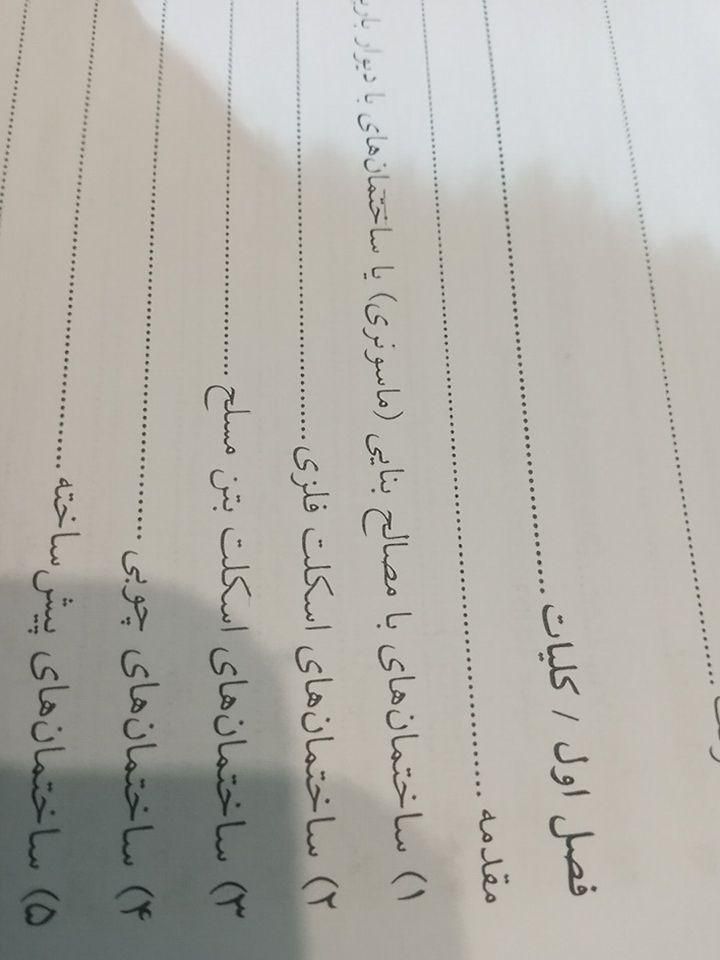 فصل اول / کلیات
مقدمه
۱) ساختمان‌های با مصالح بنایی (ماسونری) یا ساختمان‌های با دیوار
۲) ساختمان‌های اسکلت فلزی
۳) ساختمان‌های اسکلت بتن مسلح
۴) ساختمان‌های چوبی
۵) ساختمان‌های پیش ساخته